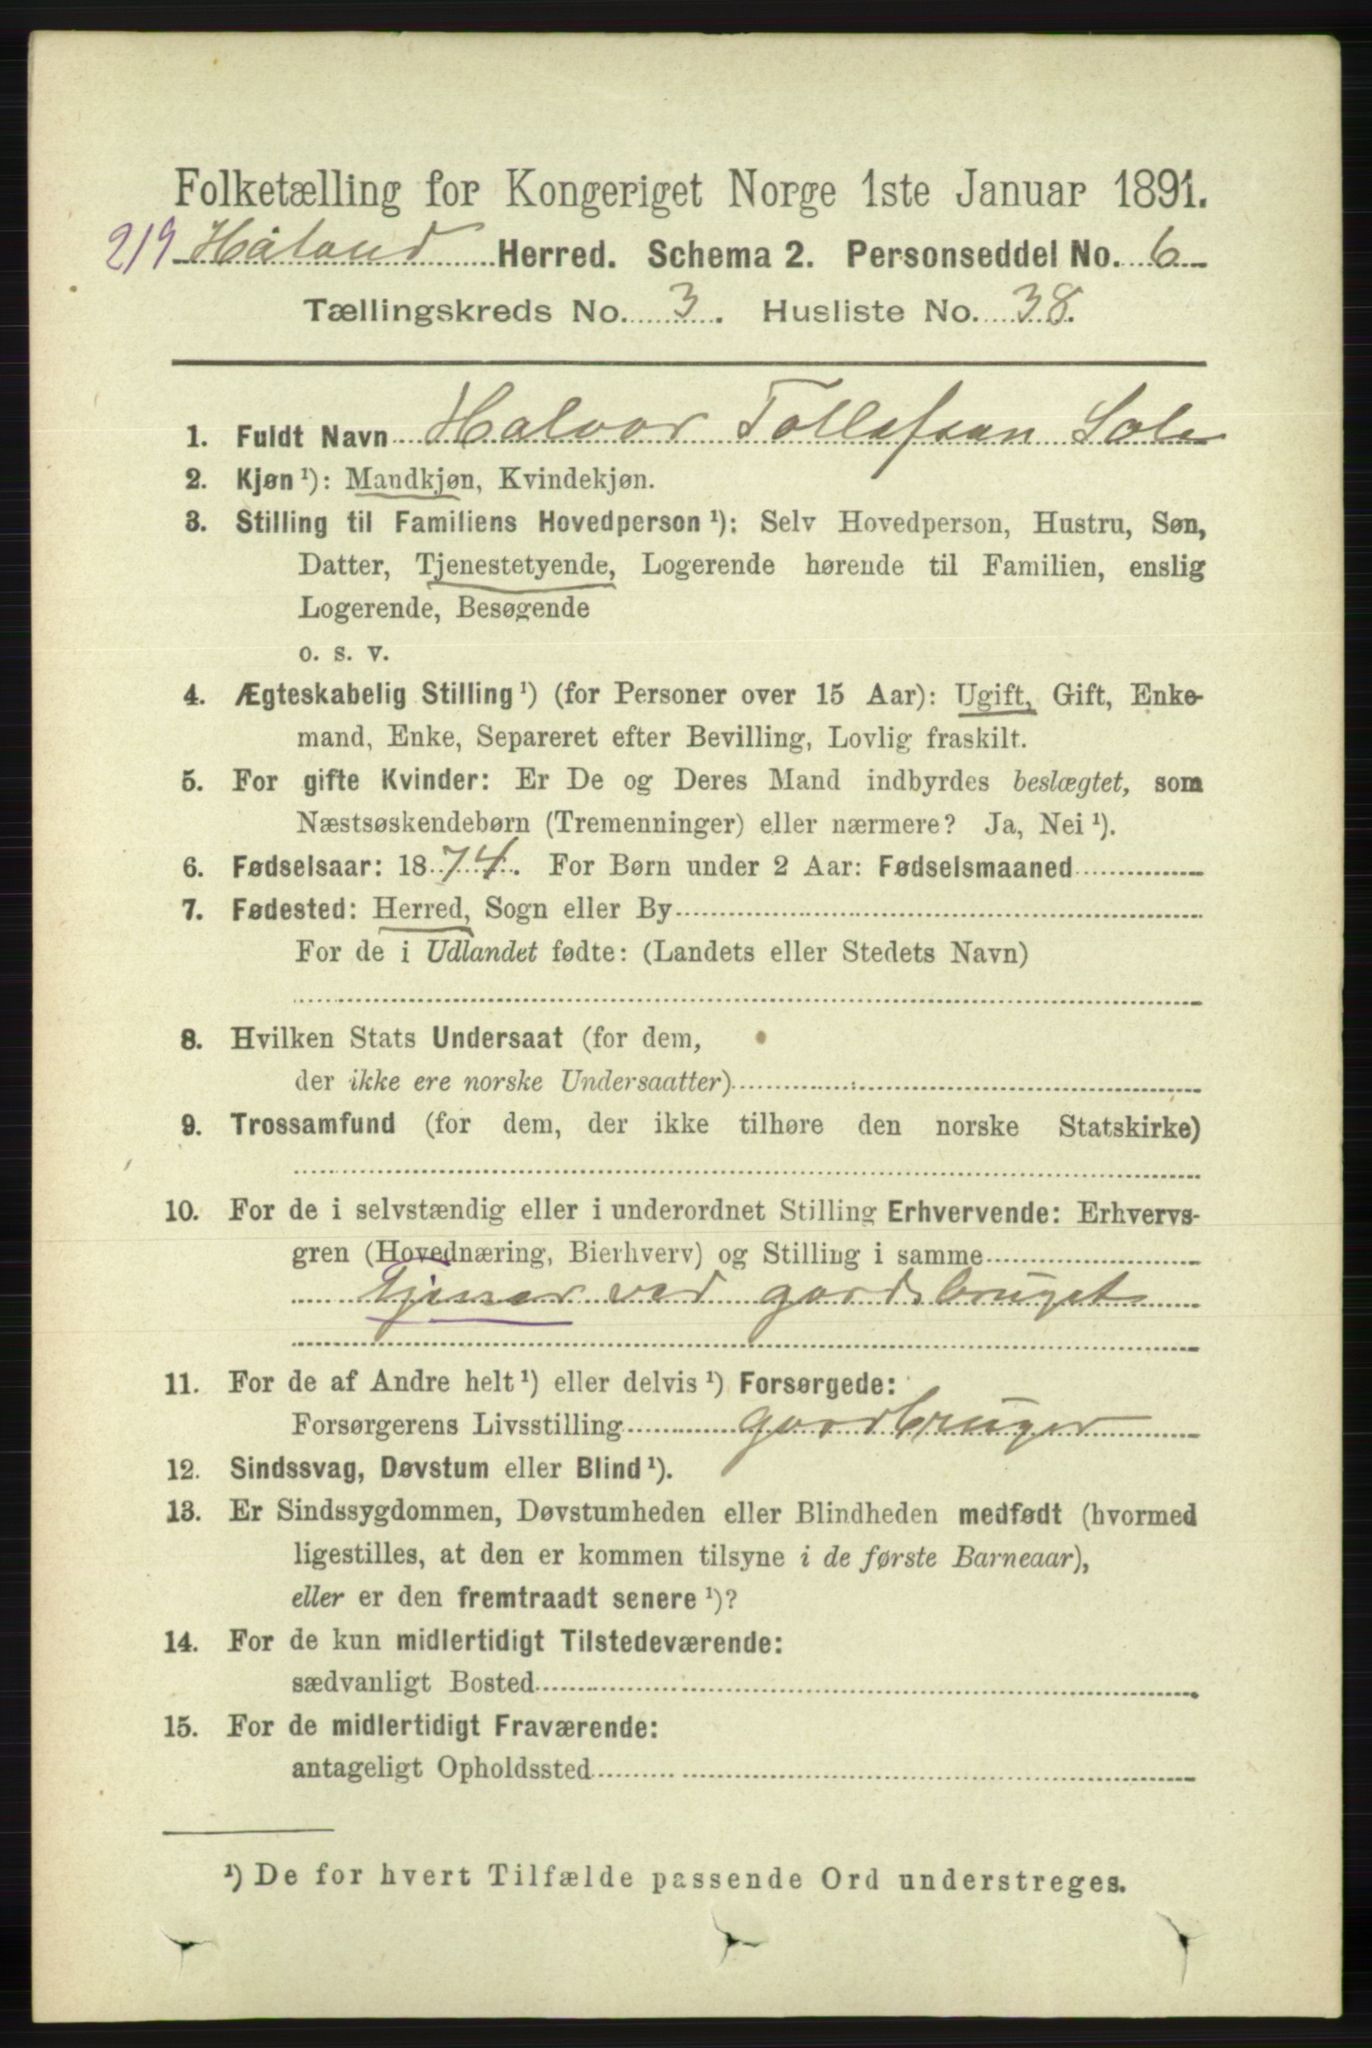 Folketælling for Kongeriget Norge 1ste Januar 1891.
219 Håland Herred. Schema 2. Personseddel No. 6
Tællingskreds No. 3. Husliste No. 38.
1. Fuldt Navn Halvor Tollefsen Sole
2. Kjøn ¹): Mandkjøn, Kvindekjøn.
3. Stilling til Familiens Hovedperson ¹): Selv Hovedperson, Hustru, Søn,
Datter, Tjenestetyende, Logerende hørende til Familien, enslig
Logerende, Besøgende
o. s. v.
4. Ægteskabelig Stilling ¹) (for Personer over 15 Aar): Ugift, Gift, Enke-
mand, Enke, Separeret efter Bevilling, Lovlig fraskilt.
5. For gifte Kvinder: Er De og Deres Mand indbyrdes beslægtet, som
Næstsøskendebørn (Tremenninger) eller nærmere? Ja, Nei ¹).
6. Fødselsaar: 1874. For Børn under 2 Aar: Fødselsmaaned
7. Fødested: Herred, Sogn eller By
For de i Udlandet fødte: (Landets eller Stedets Navn)
8. Hvilken Stats Undersaat (for dem,
der ikke ere norske Undersaatter)
9. Trossamfund (for dem, der ikke tilhøre den norske Statskirke)
10. For de i selvstændig eller i underordnet Stilling Erhvervende: Erhvervs-
gren (Hovednæring, Bierhverv) og Stilling i samme
tjener ved gardsbruget
11. For de af Andre helt ¹) eller delvis ¹) Forsørgede:
Forsørgerens Livsstilling gardbruger
12. Sindssvag, Døvstum eller Blind ¹).
13. Er Sindssygdommen, Døvstumheden eller Blindheden medfødt (hvormed
ligestilles, at den er kommen tilsyne i de første Barneaar),
eller er den fremtraadt senere ¹)?
14. For de kun midlertidigt Tilstedeværende:
sædvanligt Bosted
15. For de midlertidigt Fraværende:
antageligt Opholdssted
¹) De for hvert Tilfælde passende Ord understreges.